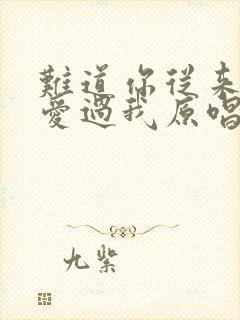 難道你從来
愛過我原唱
九紫